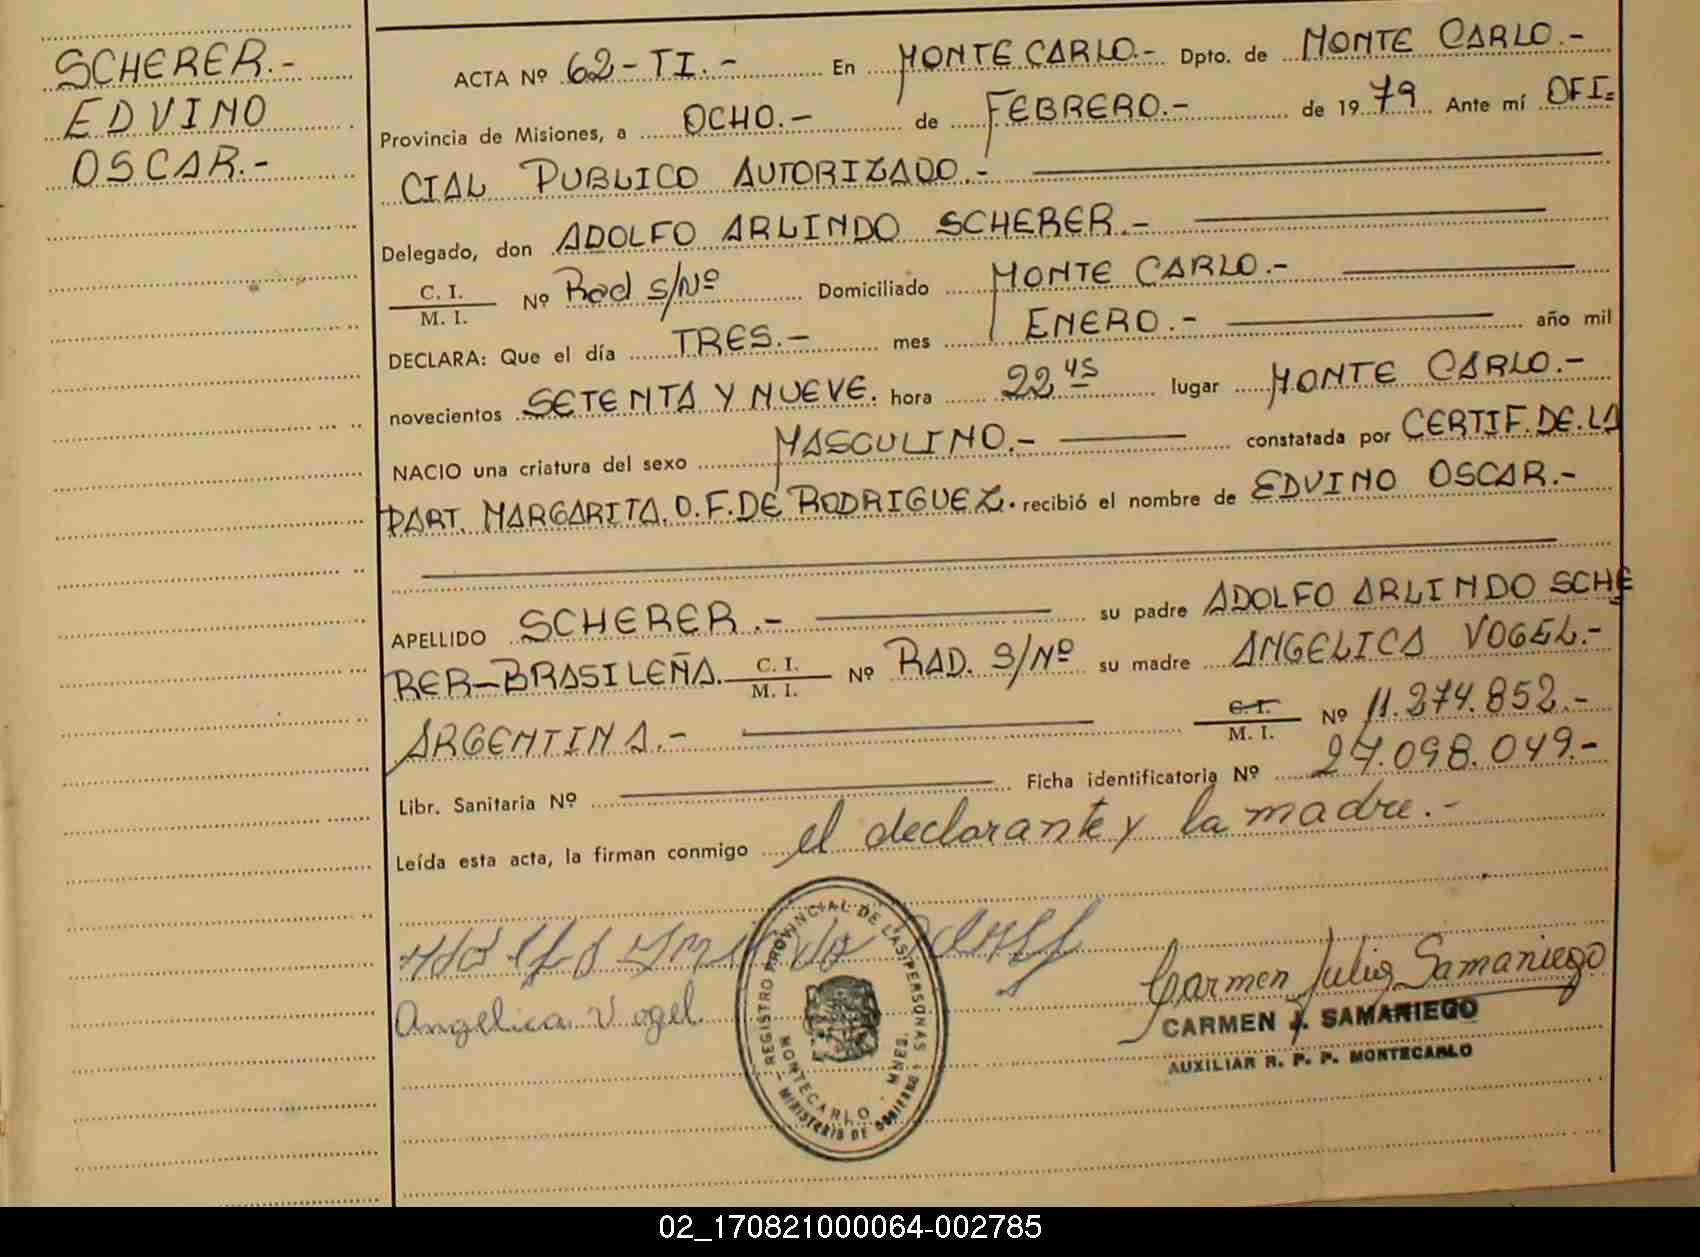 SCHERER.-
EDVINO
OSCAR.-
ACTA Nº 62-TI.- En MONTE CARLO.- Dpto. de MONTE CARLO.-
Provincia de Misiones, a OCHO.- de FEBRERO.- de 1979 Ante mí OFI=
CIAL PUBLICO AUTORIZADO.-
Delegado, don ADOLFO ARLINDO SCHERER.-
C. I.
M. I. Nº Rad s/Nº Domiciliado MONTE CARLO.-
DECLARA: Que el día TRES.- mes ENERO.- año mil
novecientos SETENTA Y NUEVE. hora 22 45 lugar MONTE CARLO.-
NACIO una criatura del sexo MASCULINO.- constatada por CERTIF. DE. LA
PART. MARGARITA. O. F. DE RODRIGUEZ. recibió el nombre de EDVINO OSCAR.-
APELLIDO SCHERER.- su padre ADOLFO ARLINDO SCHE
RER-BRASILEÑA. C. I.
M. I. Nº RAD. S/Nº su madre ANGELICA VOGEL.-
ARGENTINA.- C. I.
M. I. Nº 11.274.852.-
Libr. Sanitaria Nº Ficha identificatoria Nº 27.098.049.-
Leída esta acta, la firman conmigo el declarante y la madre.-
Angelica Vogel
Carmen Julia Samaniego
CARMEN J. SAMANIEGO
AUXILIAR R. P. P. MONTECARLO
REGISTRO PROVINCIAL DE LAS PERSONAS
MONTECARLO - MNES.
MINISTERIO DE GOBIERNO
02_170821000064-002785